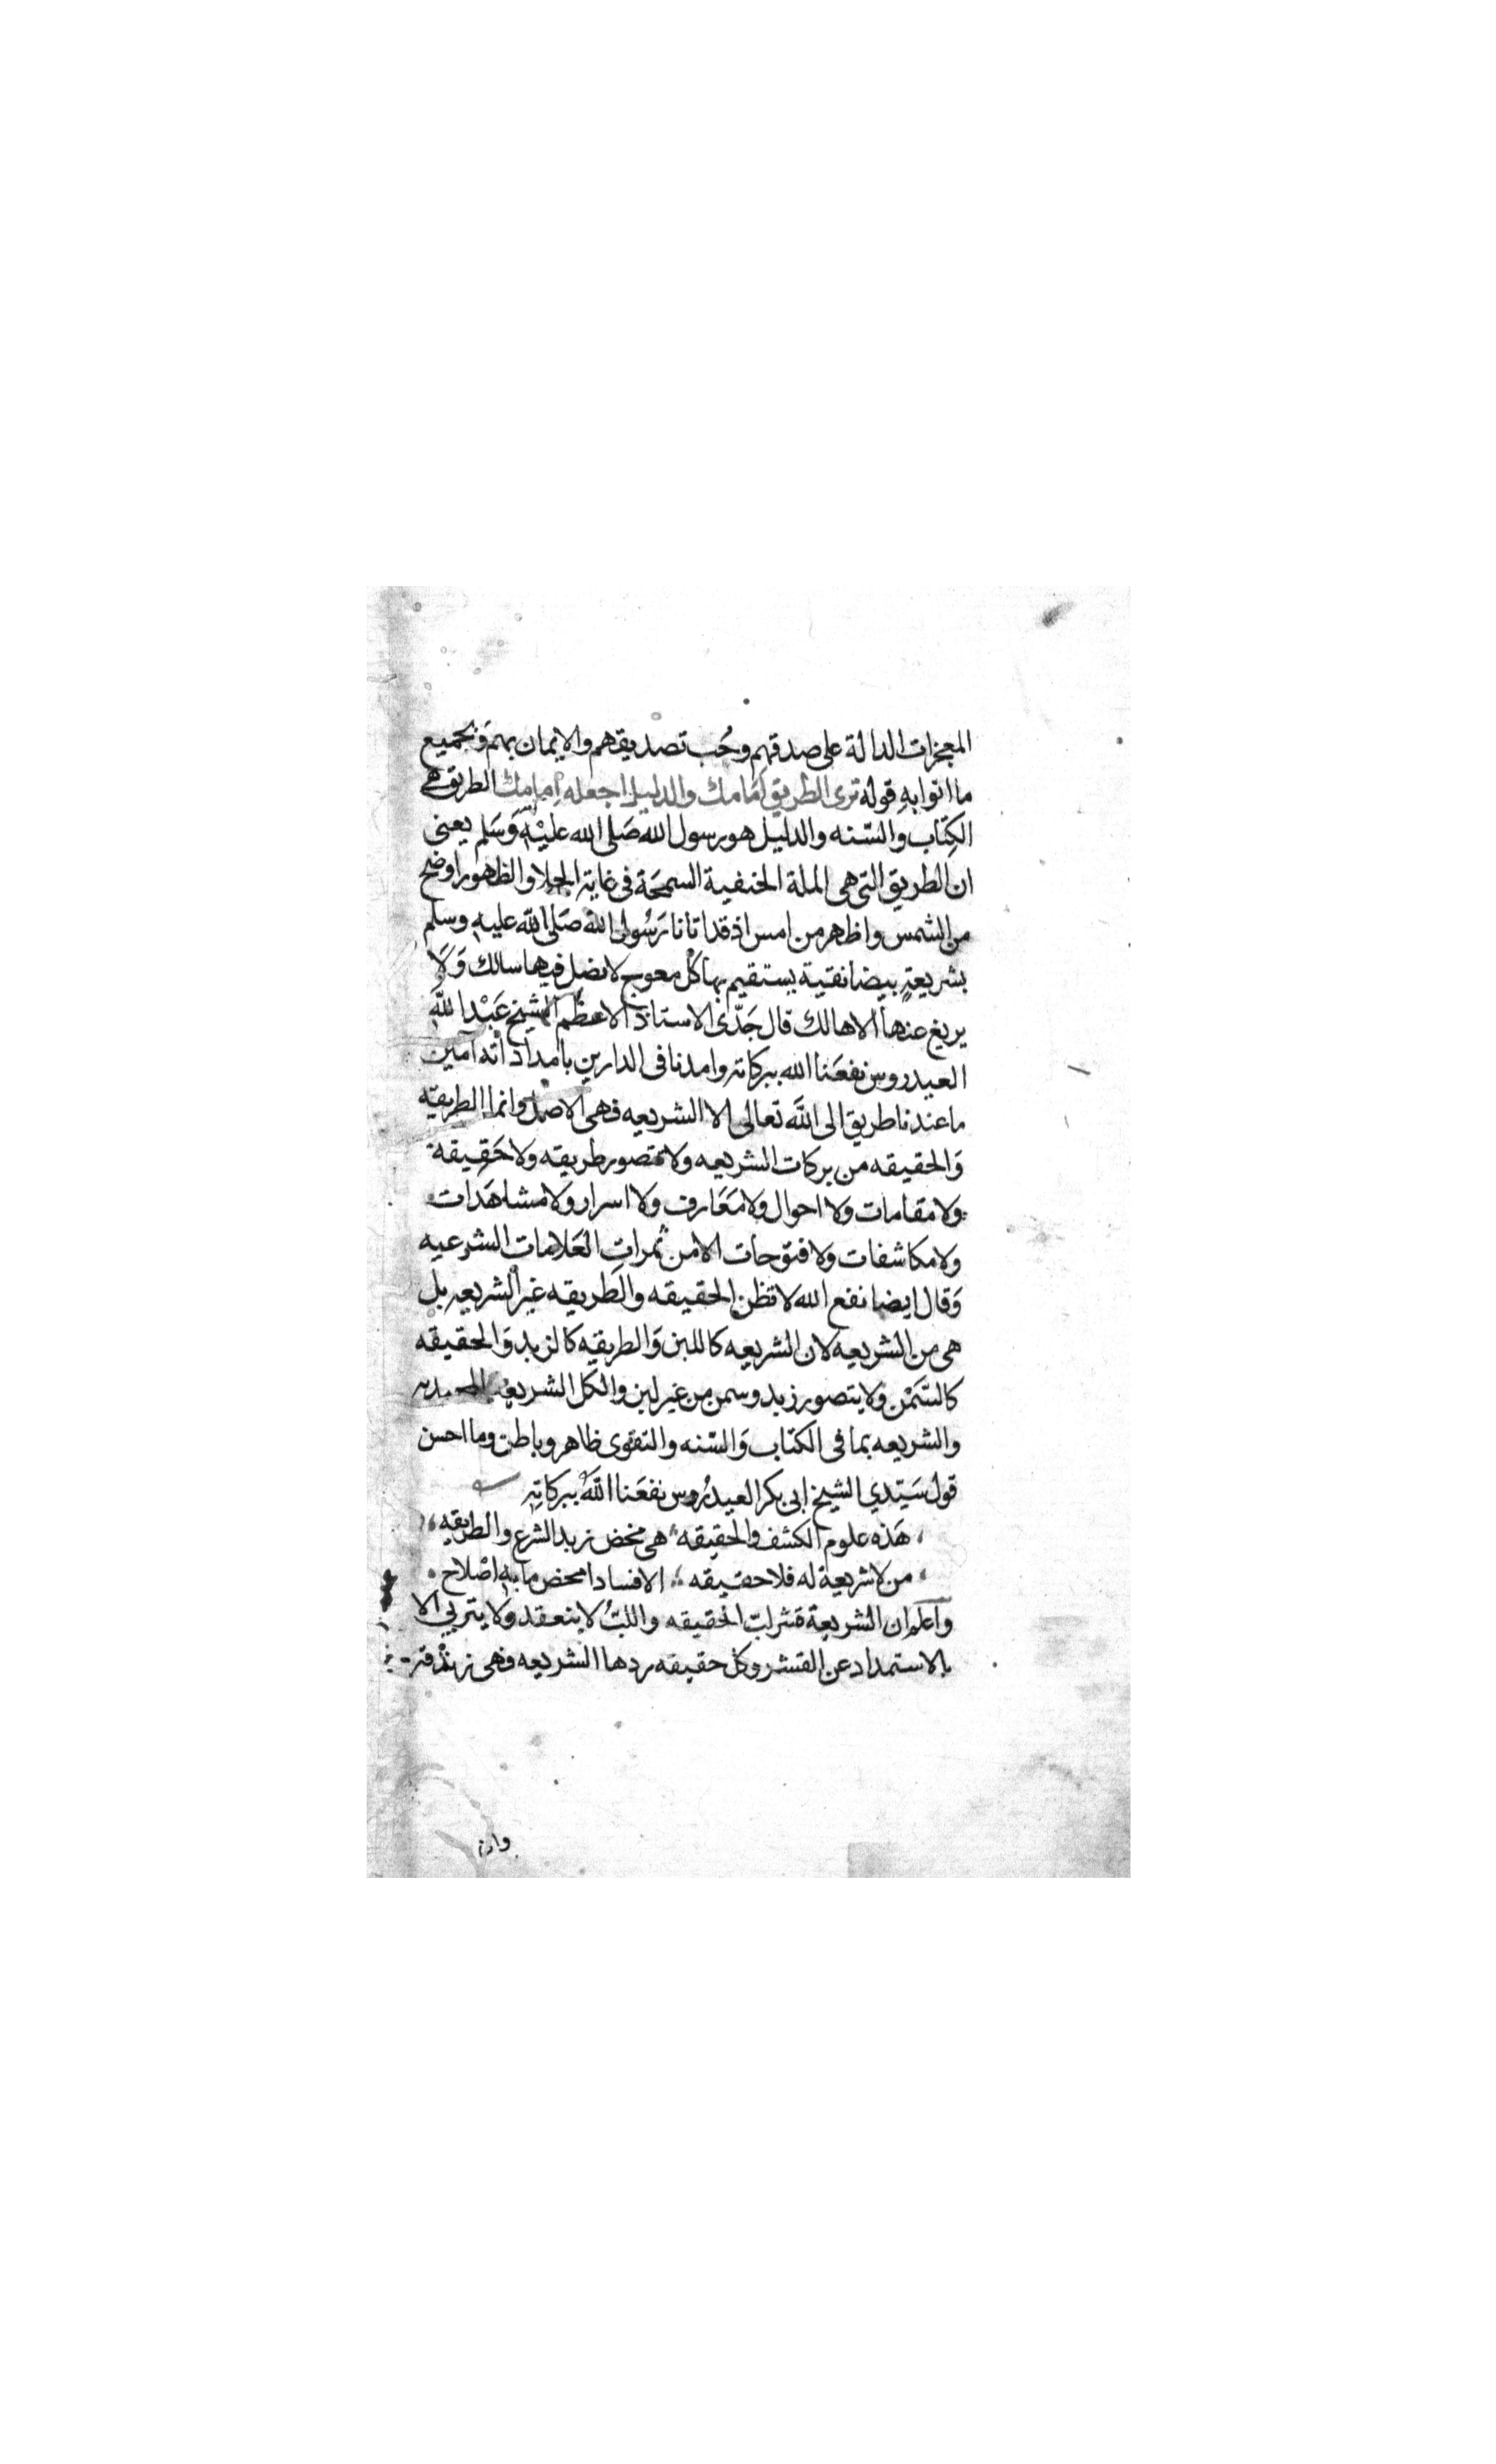 المعجزات الدالة على صدقهم وجُب تصديقهم والايمان بهم وَبجميع
ما اتوا بهِ قوله ترى الطريق اَمَامك والدليل اجعله اِمامك الطريق هي
الكِتاب والسّنه والدليل هو رسول الله صَلى الله عليْهِ وَسَلم يعنى
ان الطريق التى هى الملة الحنفية السمحَة فى غاية الجلا والظهور اوضح
من الشمس واظهر من امس اذ قد اتانا رَسُول الله صَلى الله عليهِ وسلم
بشريعةٍ بيضا نقية يستقيم بها كل معوج لا يضل فيها سالك وَلَا
يريغ عنها الا هالك قال جَدّى الاستاذ الاعظم الشيخ عَبْد اللهِ
العيدروس نفعَنا الله ببركاته وامدنا فى الدارين بامداداته آمين
ما عندنا طريق الى اللَه تعالى الا الشريعه فهى الاصل وانما الطريقه
وَالحقيقه من بركات الشريعه ولا تتصور طريقه ولا حَقِيقة
ولا مقامات ولا احوال ولا مَعَارف ولا اسرار ولا مشاهَدات
ولا مكاشفات ولا فتوحات الا من ثمراتِ العَلامات الشرعيه
وَقال ايضا نفع الله لا تظن الحقيقه والطريقه غير الشريعه بل
هى من الشريعه لان الشريعه كاللبن وَالطريقه كالزبد وَالحقيقه
كالسّمْن ولا يتصور زبد وسمن من غير لبن والكل الشريعه
والشريعه بما فى الكتاب وَالسّنه والتقوى ظاهر وباطن وما احسن
قول سَيّدي الشيخ ابى بكر العيدرُوس نفعَنا اللهُ ببركاتِهِ
هَذه علوم الكشف والحقيقه هى مخض زبد الشرع والطريقه
من لا شريعة له فلا حقيقه الا فسادا محض ما بهِ اصْلاح
واعلم ان الشريعة قشر لبّ الحقيقه واللبُّ لا ينعقد ولا يتربي الا
بالاستمداد عن القشر وكل حقيقه ردها الشريعه فهى زندقه